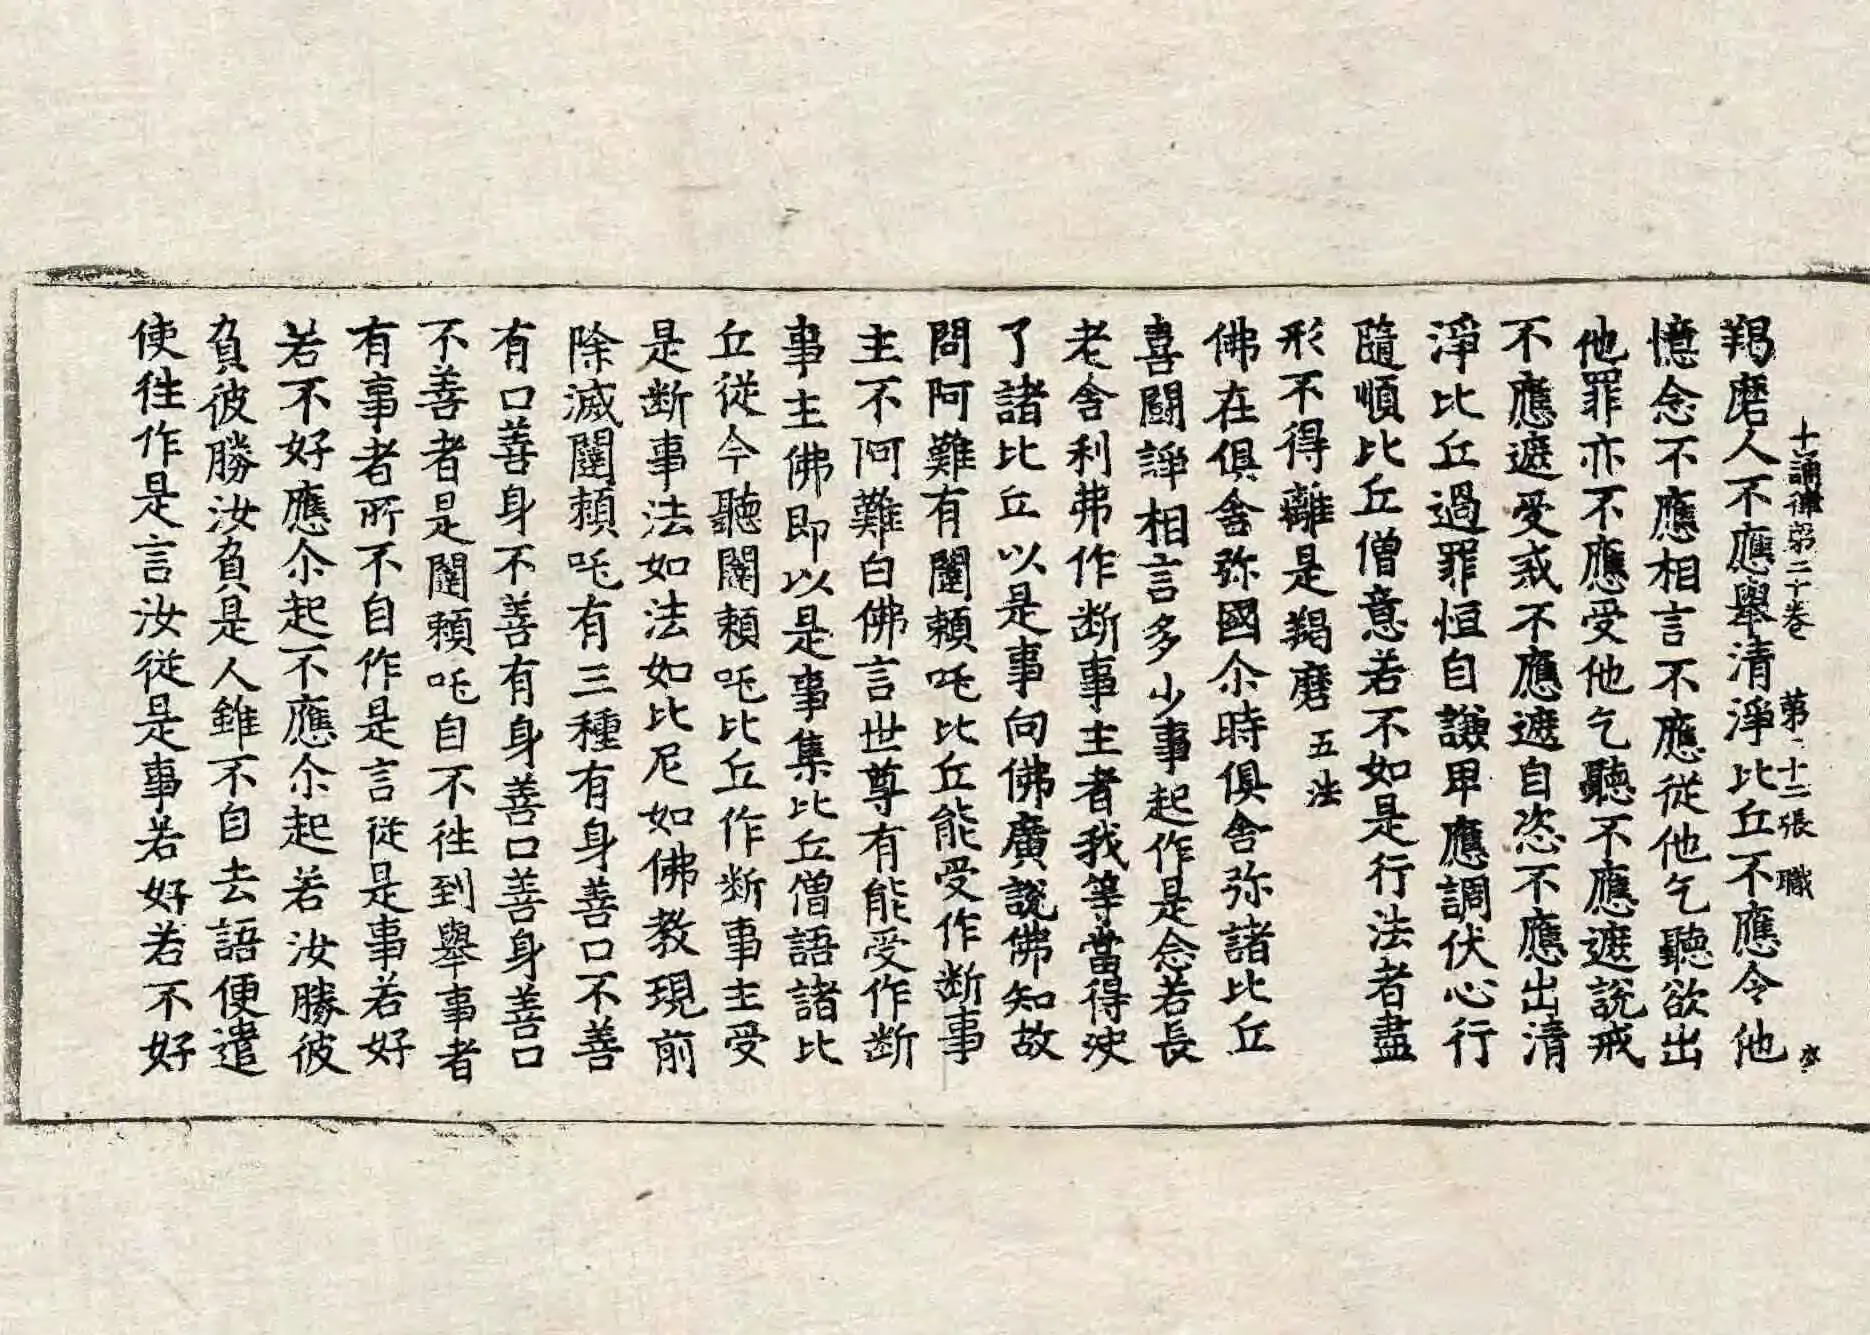 十誦律第二十卷　第二十二張　職
羯磨人不應舉清淨比丘不應令他
憶念不應相言不應從他乞聽欲出
他罪亦不應受他乞聽不應遮說戒
不應遮受戒不應遮自恣不應出清
淨比丘過罪恒自謙卑應調伏心行
隨順比丘僧意若不如是行法者盡
形不得離是羯磨五法
佛在俱舍弥國尒時俱舍弥諸比丘
喜鬪諍相言多少事起作是念若長
老舍利弗作斷事主者我等當得決
了諸比丘以是事向佛廣說佛知故
問阿難有闥賴吒比丘能受作斷事
主不阿難白佛言世尊有能受作斷
事主佛即以是事集比丘僧語諸比
丘從今聽闥賴吒比丘作斷事主受
是斷事法如法如比尼如佛教現前
除滅闥賴吒有三種有身善口不善
有口善身不善有身善口善身善口
不善者是闥賴吒自不往到舉事者
有事者所不自作是言從是事若好
若不好應尒起不應尒起若汝勝彼
負彼勝汝負是人雖不自去語便遣
使往作是言汝從是事若好若不好